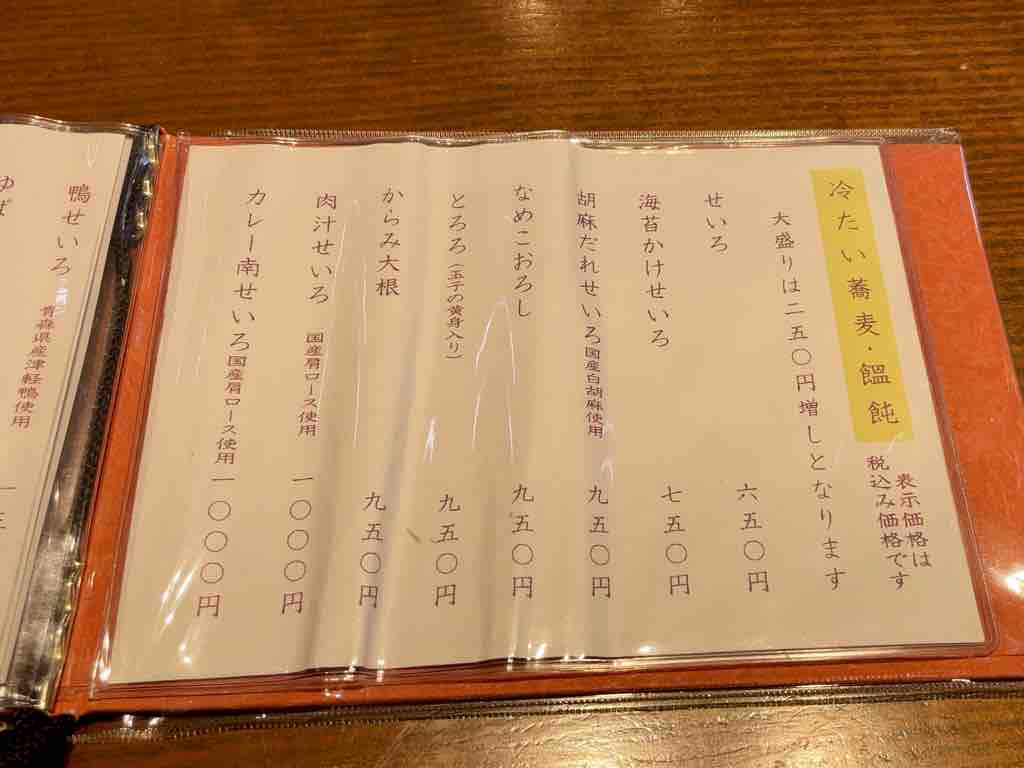 冷たい蕎麦・饂飩
表示価格は
税込み価格です
大盛りは二五〇円増しとなります
せいろ 六五〇円
海苔かけせいろ 七五〇円
胡麻だれせいろ 国産白胡麻使用 九五〇円
なめこおろし 九五〇円
とろろ(玉子の黄身入り) 九五〇円
からみ大根 九五〇円
肉汁せいろ 国産肩ロース使用 一〇〇〇円
カレー南せいろ 国産肩ロース使用 一〇〇〇円
鴨せいろ
青森県産津軽鴨使用